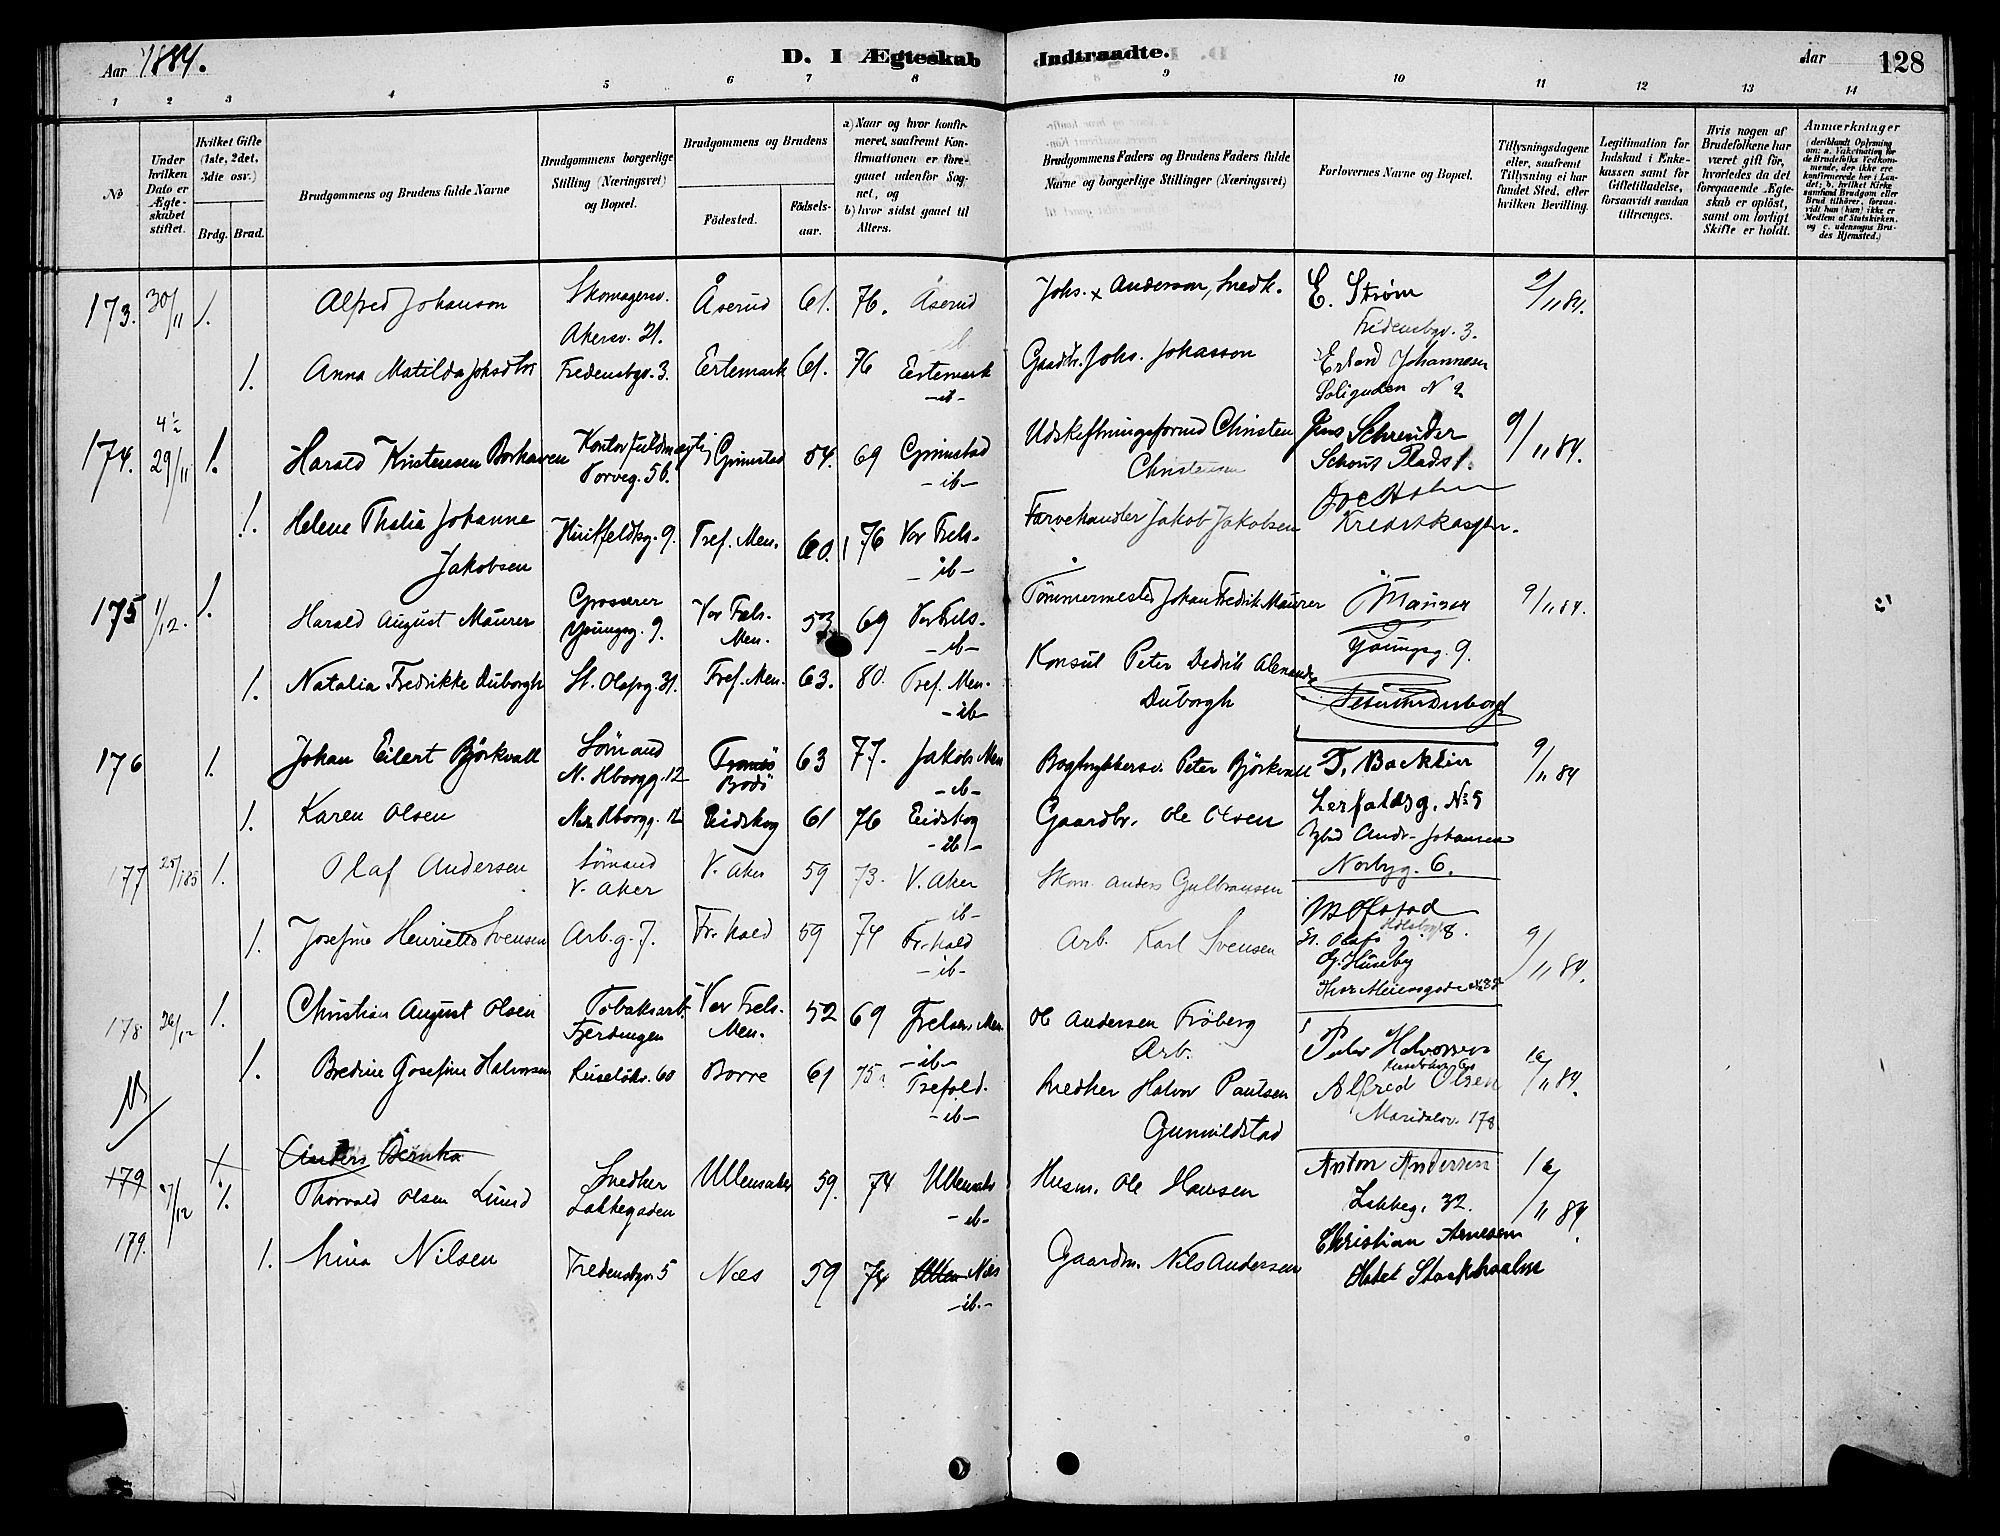 Aar 1884.
D. I Ægteskab Indtraadte.
Aar 128
1 2 3 4 5 6 7 8 9 10 11 12 13 14
No
Under hvilken Dato er Ægteskabet stiftet.
Hvilket Gifte (1ste, 2det, 3die osv.)
Brdg. Brud.
Brudgommens og Brudens fulde Navne
Brudgommens borgerlige Stilling (Næringsvei) og Bopæl.
Brudgommens og Brudens
Födested. Födselsaar.
a) Naar og hvor konfirmeret, saafremt Konfirmationen er foregaaet udenfor Sognet, og
b) hvor sidst gaaet til Alters.
Brudgommens Faders og Brudens Faders fulde Navne og borgerlige Stillinger (Næringsvei)
Forlovernes Navne og Bopæl.
Tillysningsdagene eller, saafremt Tillysning ei har fundet Sted, efter hvilken Bevilling.
Legitimation for Indskud i Enkekassen samt for Giftetilladelse, forsaavidt saadan tiltrænges.
Hvis nogen af Brudefolkene har været gift för, hvorledes da det foregaaende Ægteskab er oplöst, samt om lovligt Skifte er holdt.
Anmærkninger (deriblandt Oplysning om: a. Vakcination for de Brudefolks Vedkommende, der ikke ere konfirmerede her i Landet; b. hvilket Kirkesamfund Brudgom eller Brud tilhörer, forsaavidt han (hun) ikke er Medlem af Statskirken, og c. udensogns Brudes Hjemsted.)
173. 30/11 1. Alfred Johanson Skomagersv. Akersv. 21. Åserud 61. 76. Åserud Johs. Anderson, Snedk. E. Strøm Fredensbgv. 3. 2/11 84.
1. Anna Matilda Johsdtr Fredensbgv. 3. Ertemark 61. 76 Ertemark -ib- Gaardbr. Johs. Johasson Erland Johannesen N 2
174. 4½ 29/11 1. Harald Kristensen Borhaven Kontorfuldmægtig 56. Grimstad 54. 69 Grimstad -ib- Udskiftningsformd Christen Christensen Jens Schreuder Schous Plads 1. 9/11 84.
1. Helene Thalia Johanne Jakobsen Huitfeldtsg. 9. Tref. Men. 60. 76 Vor Frels. -ib- Farvehandler Jakob Jakobsen
175 1/12. 1. Harald August Maurer Grosserer Youngsg. 9. Vor Frels. Men. 53 69 Vor Frels. -ib- Tømmermester Johan Fredrik Maurer Maurer Youngsg. 9. 9/11 84.
1. Natalia Fredrikke Duborgh St. Olafsg. 31. Tref. Men. 63. 80. Tref. Men. -ib- Konsul Peter Dedrik Duborgh
176 1. Johan Eilert Bjørkvall Sømand N. Aborgg. 12 Tromsö Bodö 63 77. Jakobs Men -ib- Bogtrykkersv. Peter Björkvall T. Backlin Lerfaldsg. No 5 9/11 84
1. Karen Olsen Aborgg. 12 Eidskog 61 76 Eidskog -ib- Gaardbr. Ole Olsen Andr. Johansen Norbyg. 6.
177 25/1 85 1. Olaf Andersen Sømand V. Aker V. Aker 59 73. V. Aker ib- Skom. Anders Gulbransen St. Olafs g. 8.
1. Josefine Henriette Svensen Arb. g. 7. Fr. hald 59 74 Fr. hald -ib- Arb. Karl Svensen G. Huseby Thor Meiersgade No 32 9/11 84.
178 26/12 1. Christian August Olsen Tobaksarb. Fjerdingen Vor Frels. Men. 52 69 Frelser. Men. -ib- Ol Andersen Fröberg Arb. Peder Halvorsen 16/11 84.
1. Bredine Josefine Halvorsen Ruselökv. 60 Borre 61 75 Trefold. -ib- Snedker Halvor Paulsen Gunnildstad Alfred Olsen Maridalsv. 178
179 1. Anders
7/12 1. Thorvald Olsen Lund Snedker Lakkegaden Ullensaker 59. 74 Ullensaker -ib- Husm. Ole Hansen Anton Andersen Lakkeg. 32. 16/11 84.
179. 1. Mina Nilsen Fredensbgv. 5 Næs 59 74 Ullen Næs -ib.- Gaardm. Nils Andersen Christian Arnesen Hotel Stockholm